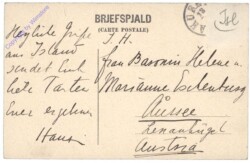 BRIEFSPJALD
(CARTE POSTALE)
Herzliche Grüße
aus Island
sendet Euch
Euer ergebener
Hans
I. H.
Frau Baronin Helene u.
Marianne Eschenburg
Aussee
Austria